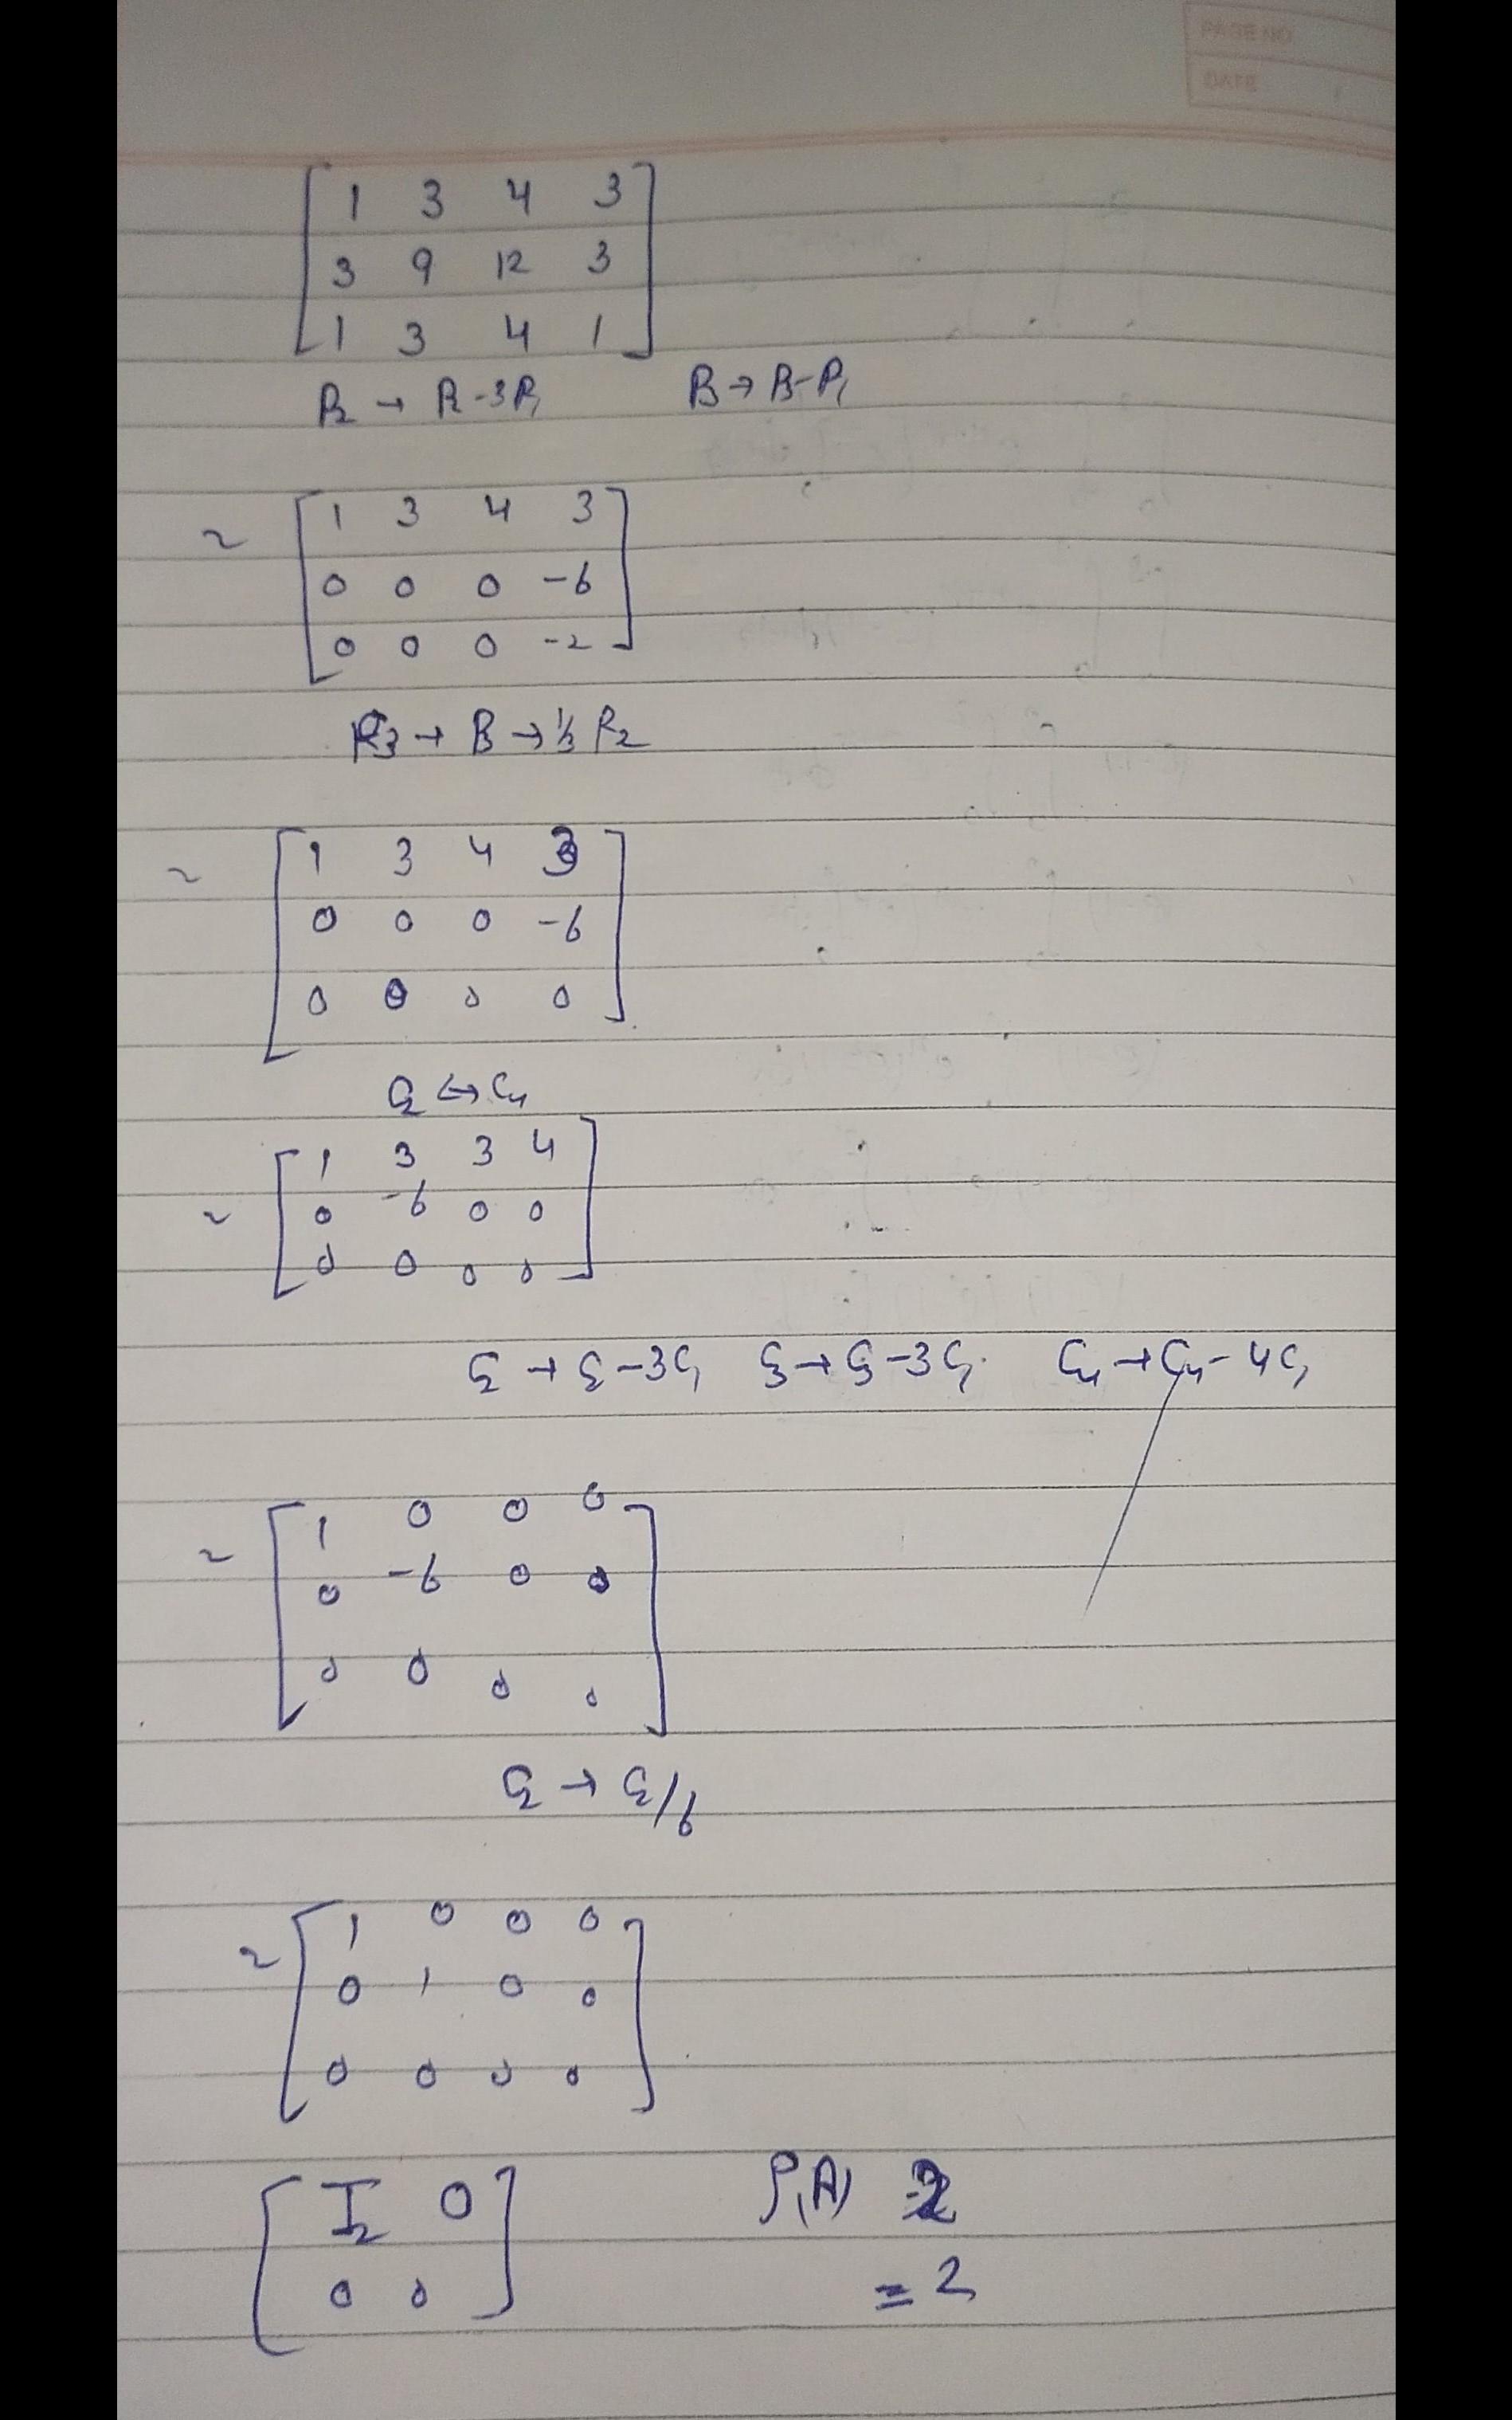 PAGE NO
DATE
1 3 4 3
3 9 12 3
1 3 4 1
R2 → R2-3R1 R3 → R3-R1
~ 1 3 4 3
0 0 0 -6
0 0 0 -2
R3 → R3 → 1/3 R2
~ 1 3 4 3
0 0 0 -6
0 0 0 0
C2 ↔ C4
~ 1 3 3 4
0 -6 0 0
0 0 0 0
C2 → C2-3C1 C3 → C3-3C1 C4 → C4-4C1
~ 1 0 0 0
0 -6 0 0
0 0 0 0
C2 → C2/6
~ 1 0 0 0
0 1 0 0
0 0 0 0
I2 0 ρ(A) 2
0 0 = 2